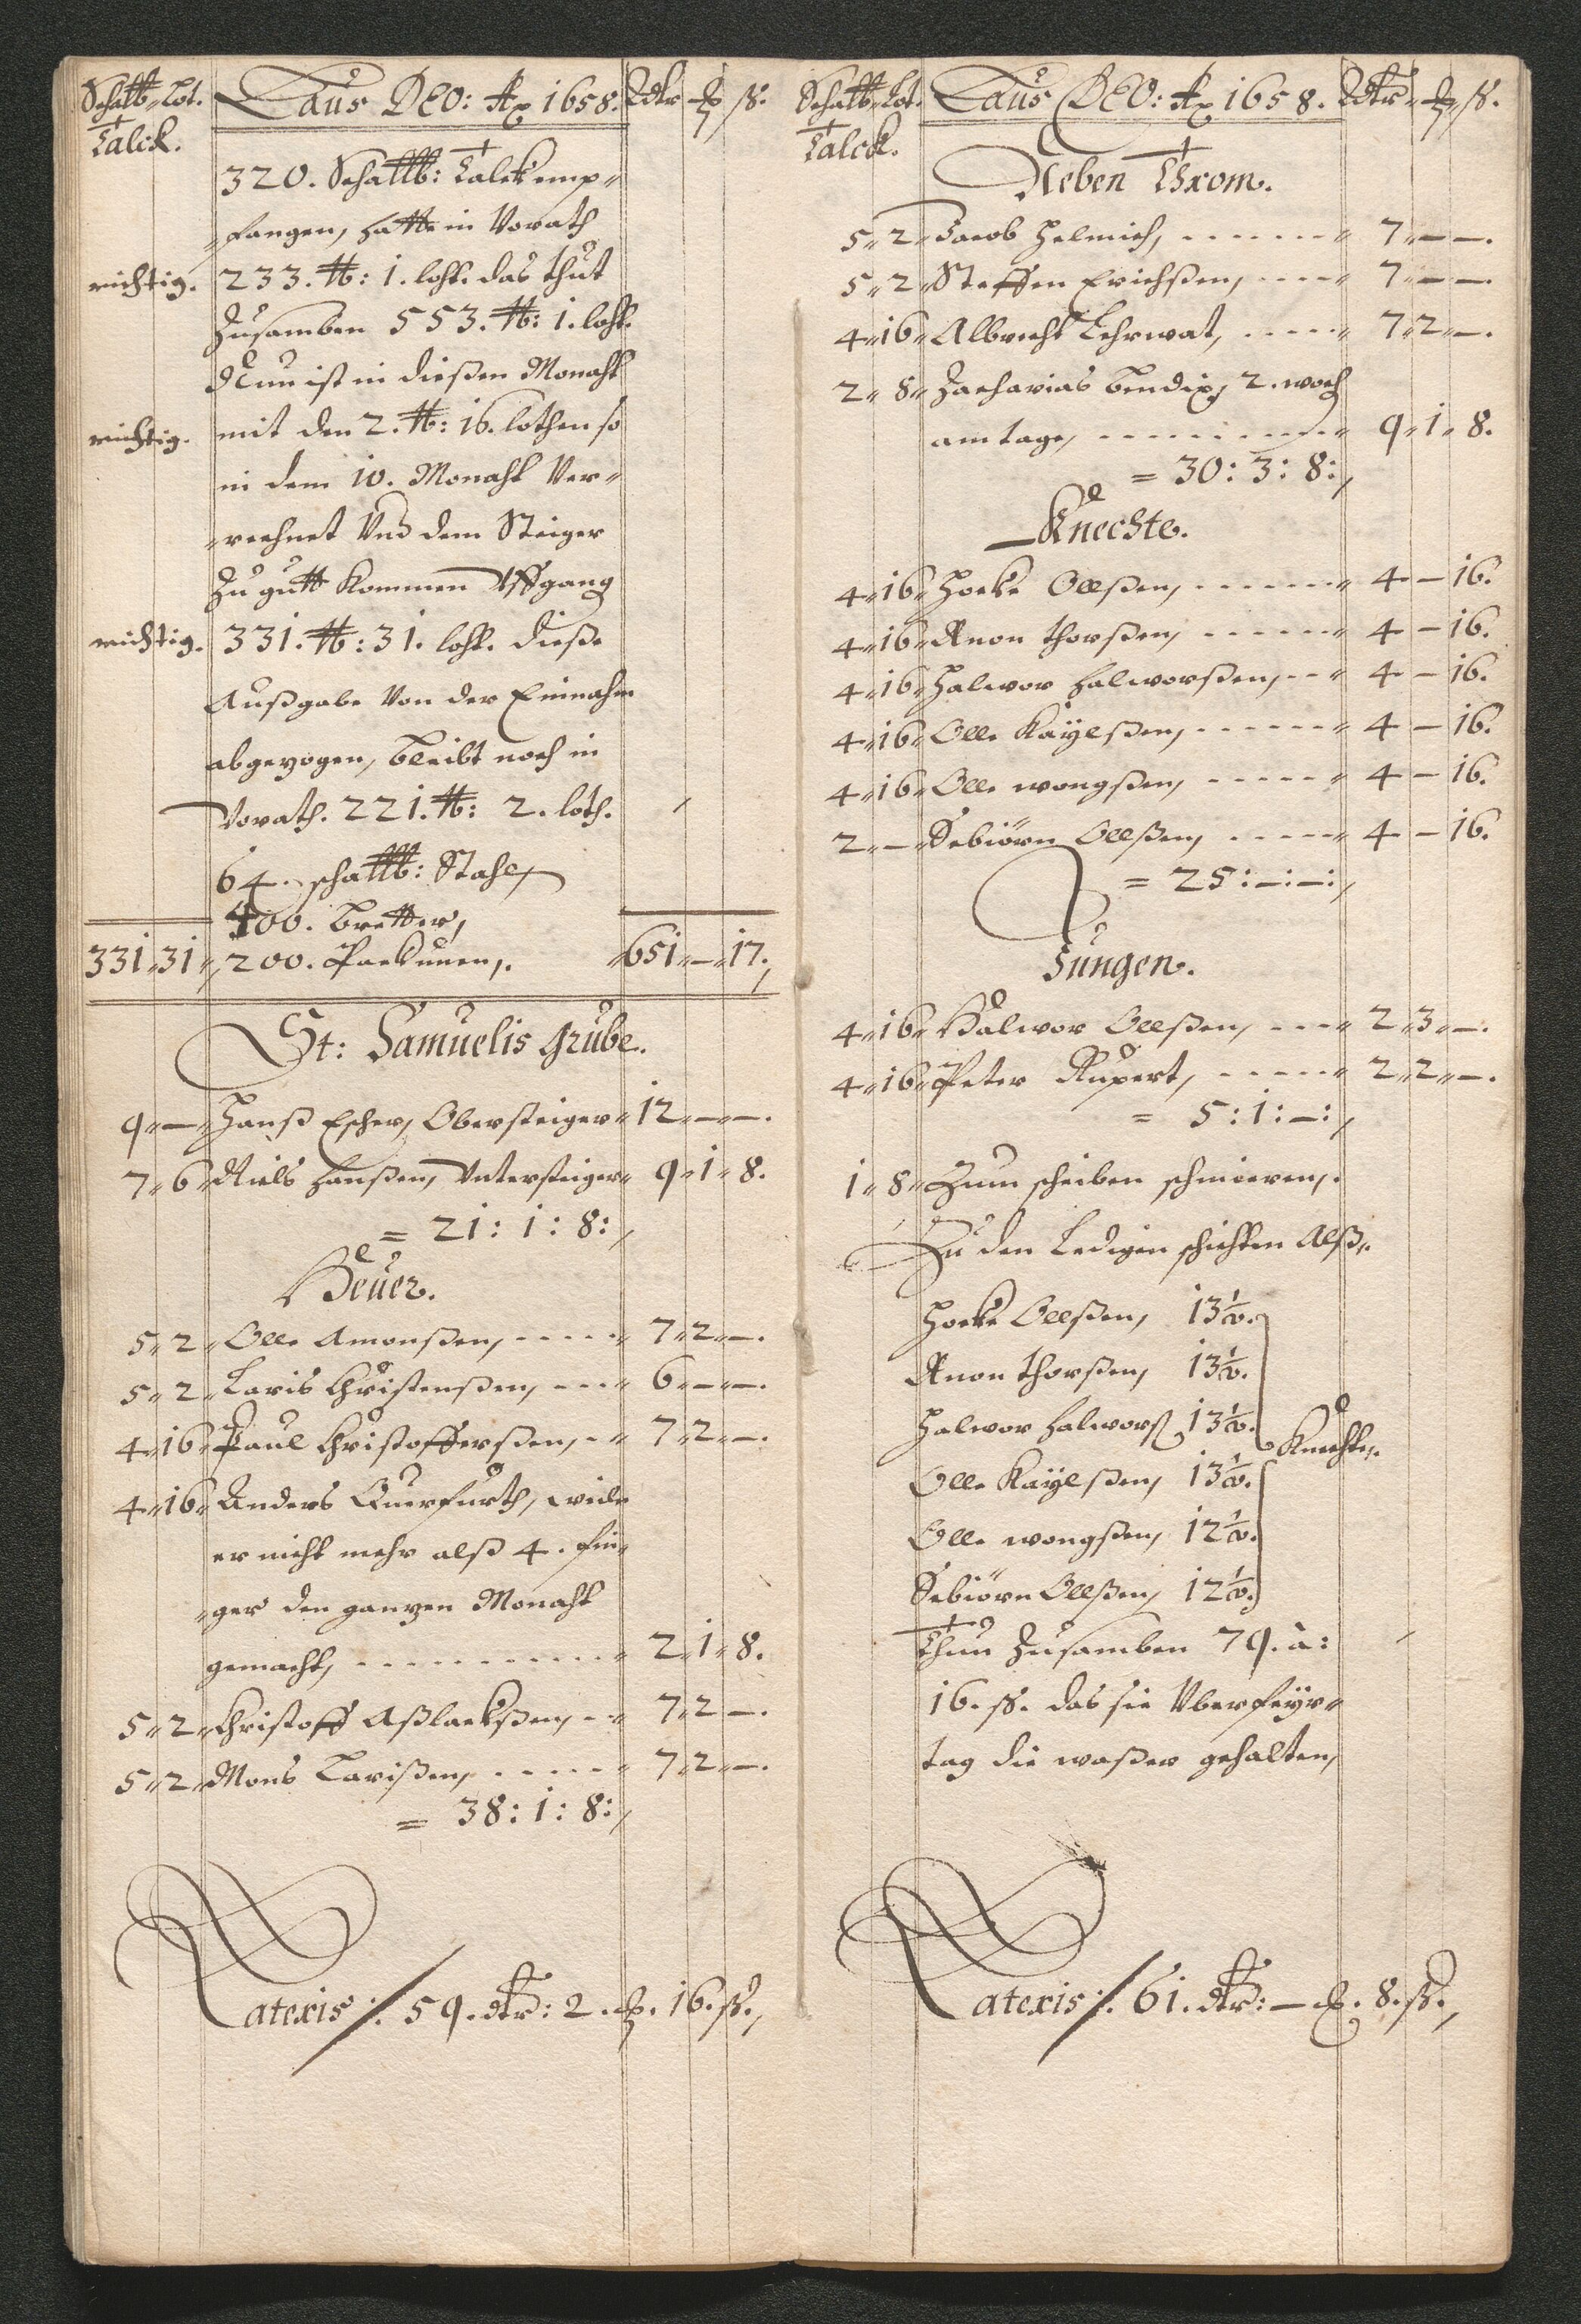 Schal℔ „ Lot. Laus DEO: Ao 1658. Rdtr „ ß.
Talck.
320. Schallb: Talck emp„
„fangen, hatte in Vorath
richtig. 233. ℔: 1. loht. das thut
Zusamben 553. ℔: 1. loht.
Nun ist in dießen Monaht
richtig. mit den 2. ℔: 16. lothen so
in dem 10. Monaht Ver„
„rechnet Und dem Steiger
Zu gutt kommen Uffgang
richtig. 331. ℔: 31. loht. dieße
Außgabe Von der Einnahm
abgezogen, bleibt noch in
Vorath. 221. ℔: 2. loth.
64. schallb: Stahl,
400. Bretter,
331 „ 31 „ 200. Packunen, „ 651 „ — „ 17.
St: Samuelis Grube.
9 „ — „ Hanß Escher, Obersteiger „ 12 „ — „ —.
7 „ 6 „ Niels Hanßen, Untersteiger „ 9 „ 1 „ 8.
= 21 : 1 : 8 :,
Heuer.
5 „ 2 „ Olle Amonßen, ----- „ 7 „ 2 „ —.
5 „ 2 „ Laris Christenßen, --- „ 6 „ — „ —.
4 „ 16 „ Paul Christofferßen, -- „ 7 „ 2 „ —.
4 „ 16 „ Anders Querfurth, weile
er nicht mehr alß 4. fin„
„ger den ganzen Monaht
gemacht, ----------- „ 2 „ 1 „ 8.
5 „ 2 „ Christoff Aßlackßen, -- „ 7 „ 2 —.
5 „ 2 „ Mons Larißen, ----- „ 7 „ 2 „ —.
= 38 : 1 : 8 :,
Lateris ./. 59. dtr: 2. 16. ß.,
Schal℔ „ Lot. Laus DEO: Ao 1658. Rdtr „ ß.
Talck.
Neben Throm.
5 „ 2 „ Jacob Helmich, ------- „ 7 „ — —.
5 „ 2 „ Steffen Erichßen, ---- „ 7 „ — —.
4 „ 16 „ Albrecht Lehrwat, ----- „ 7 „ 2 „ —.
2 „ 8 „ Zacharias Bendix, 2. woch
am tage, ---------- „ 9 „ 1 „ 8.
= 30 : 3 : 8 :,
Knechte.
4 „ 16 „ Hocke Ollßen, ------- „ 4 — 16.
4 „ 16 „ Anon Thorßen, ------ „ 4 — 16.
4 „ 16 „ Halwor Halworßen, -- „ 4 — 16.
4 „ 16 „ Olle Kaÿlßen, ------ „ 4 — 16.
4 „ 16 „ Olle wongßen, ----- „ 4 — 16.
2 „ — „ Sebiörn Ollßen, ----- „ 4 — 16.
= 25 : — : — :,
Jungen.
4 „ 16 „ Halwor Ollßen, --- „ 2 „ 3 „ —.
4 „ 16 „ Peter Rupert, ----- „ 2 „ 2 „ —.
= 5 : 1 : — :,
1 „ 8 „ Zum scheiben schmieren,.
Zu den Ledigen schichten Alß,
Hocke Ollßen, 13½.
Anon Thorßen, 13½.
Halwor Halworß 13½. Knechte,.
Olle Kaÿlßen, 13½.
Olle wongßen, 12½.
Sebiörn Ollßen, 12½.
Thun Zusamben 79. à:
16. ß. das sie Uberfeÿr„
tag die waßer gehalten,
Lateris ./. 61. dtr: — 8. ß.,